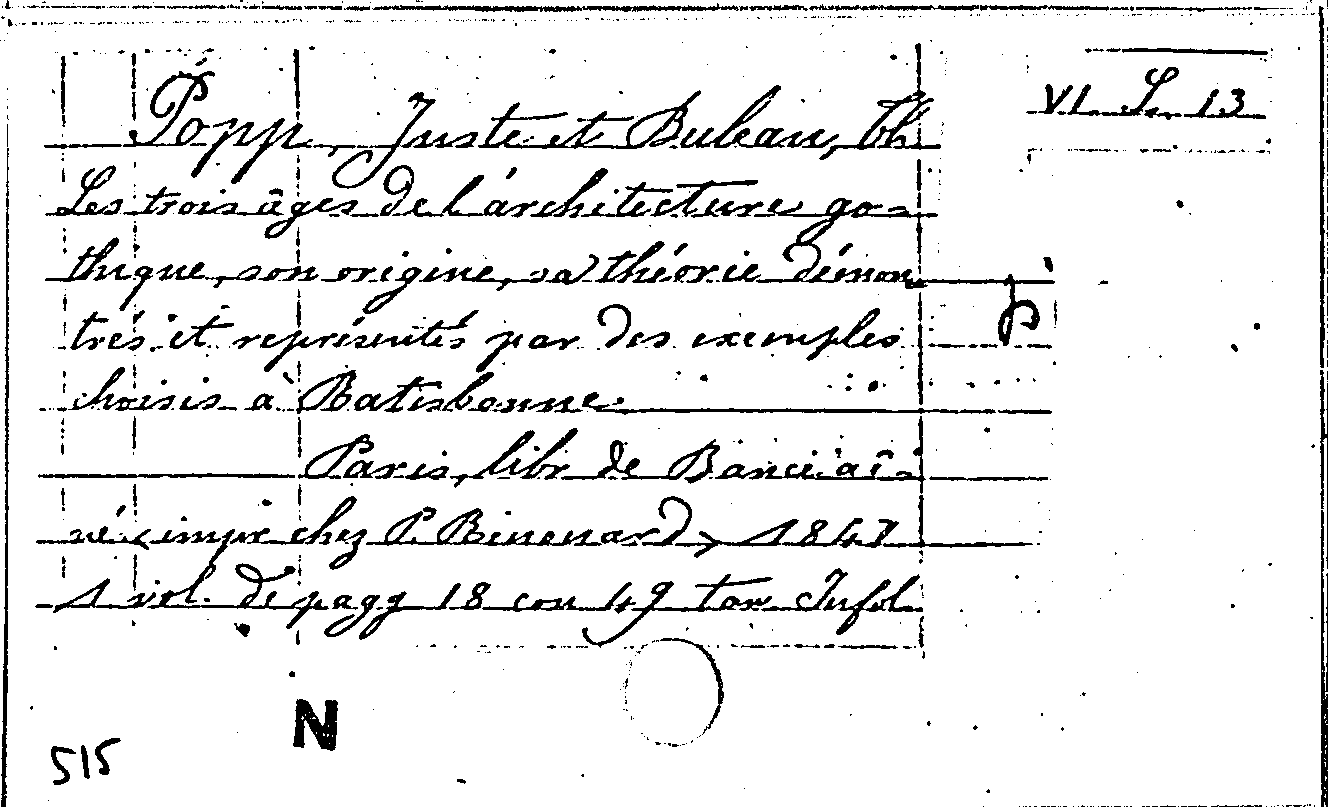 VI. S. 13
Popp, Juste et Buleau, Th
Les trois âges de l'architecture go-
thique, son origine, sa théorie démon
trés et représentés par des exemples
choisis à Batisbonne
Paris, libr de Bance aî-
né <impr chez P. Binenard> 1847
1 vol. di pagg 18 con 49 tav Infol
N
515